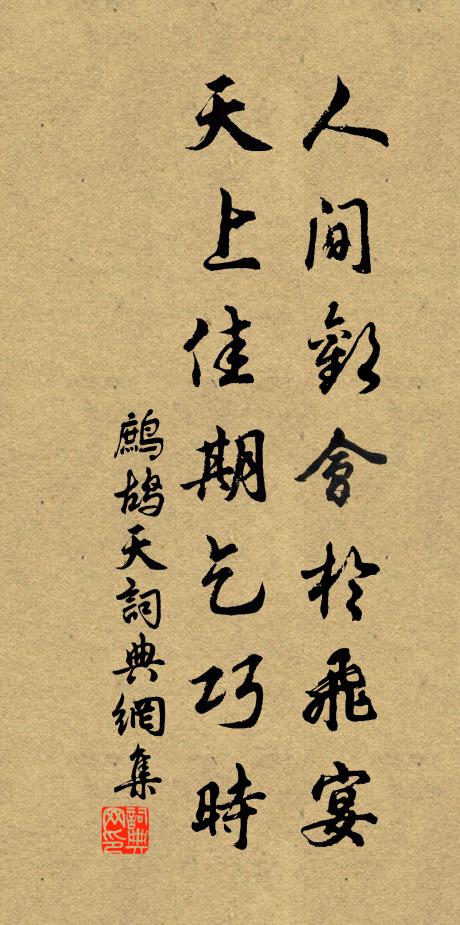 人間歡會於飛宴
天上佳期乞巧時
鷓鴣天詞典網集
詞典網印